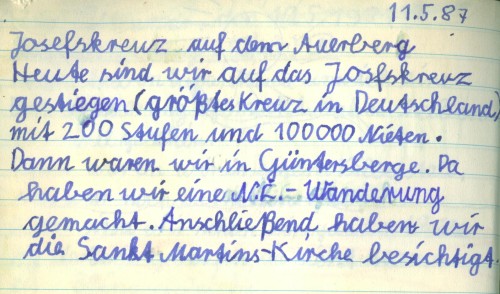 11.5.87
Josefskreuz auf dem Auerberg
Heute sind wir auf das Josfskreuz
gestiegen (größtes Kreuz in Deutschland)
mit 200 Stufen und 100000 Nieten.
Dann waren wir in Güntersberge. Da
haben wir eine N.E.-Wanderung
gemacht. Anschließend haben wir
die Sankt Martins-Kirche besichtigt.